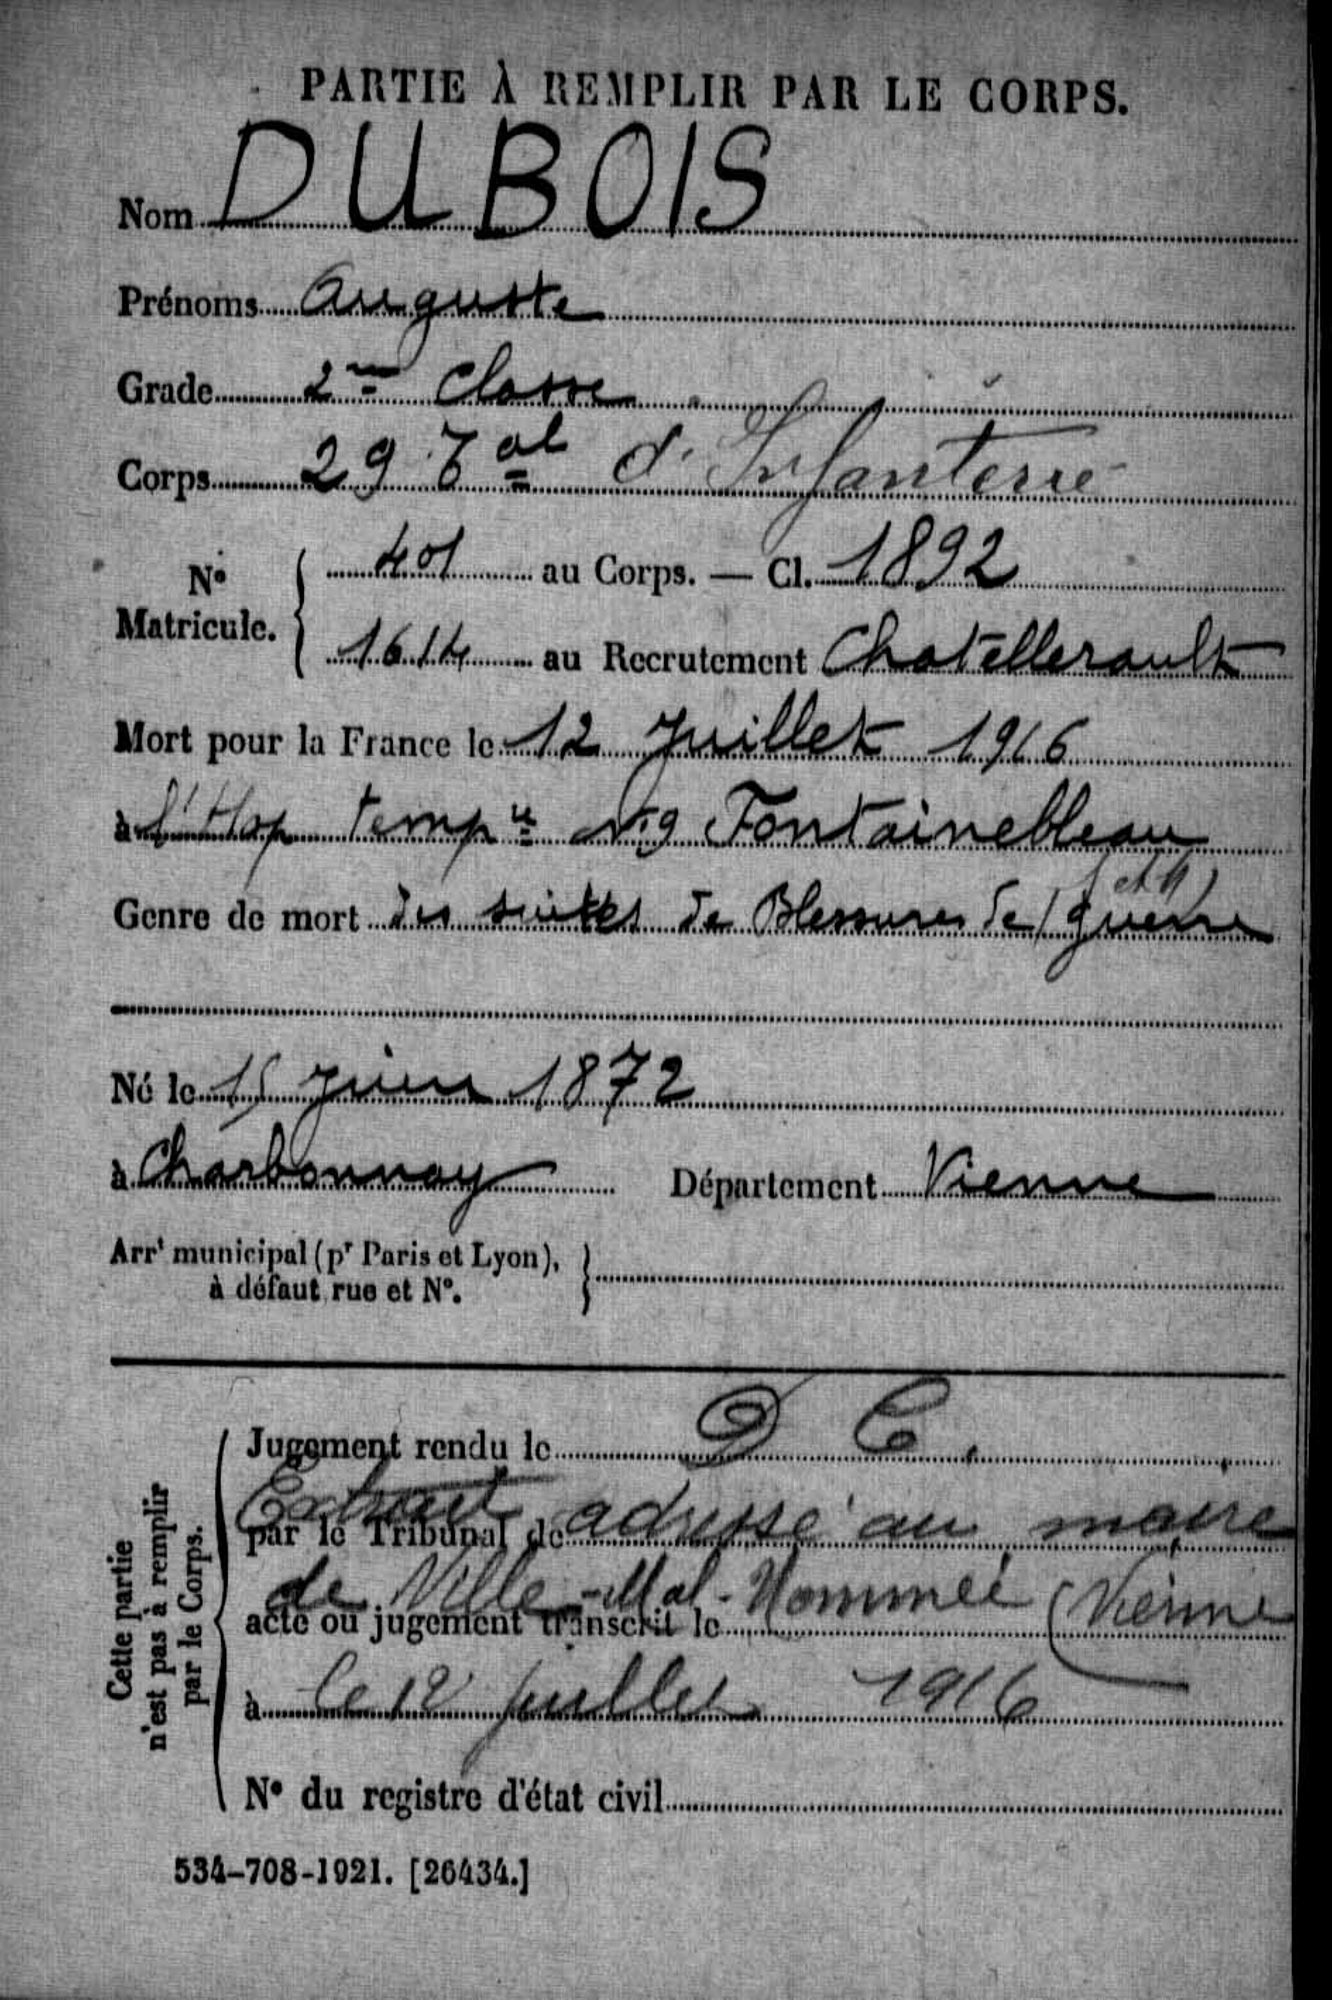 PARTIE À REMPLIR PAR LE CORPS.
Nom DUBOIS
Prénoms Auguste
Grade 2me Classe
Corps 29 Tal d'Infanterie
No Matricule. 401 au Corps. — Cl. 1892
1614 au Recrutement Chatellerault
Mort pour la France le 12 Juillet 1916
à l'Hop tempre No 9 Fontainebleau
(S et M)
Genre de mort des suites de Blessures de guerre
Né le 15 Juin 1872
à Charbonnay Département Vienne
Arrt municipal (pr Paris et Lyon),
à défaut rue et No.
Cette partie
n'est pas à remplir
par le Corps.
Jugement rendu le D C.
Extrait adressé au maire
par le Tribunal de
de Ville-Mal-Nommée (Vienne
acte ou jugement transcrit le
à le 12 juillet 1916
No du registre d'état civil
534-708-1921. [26434.]